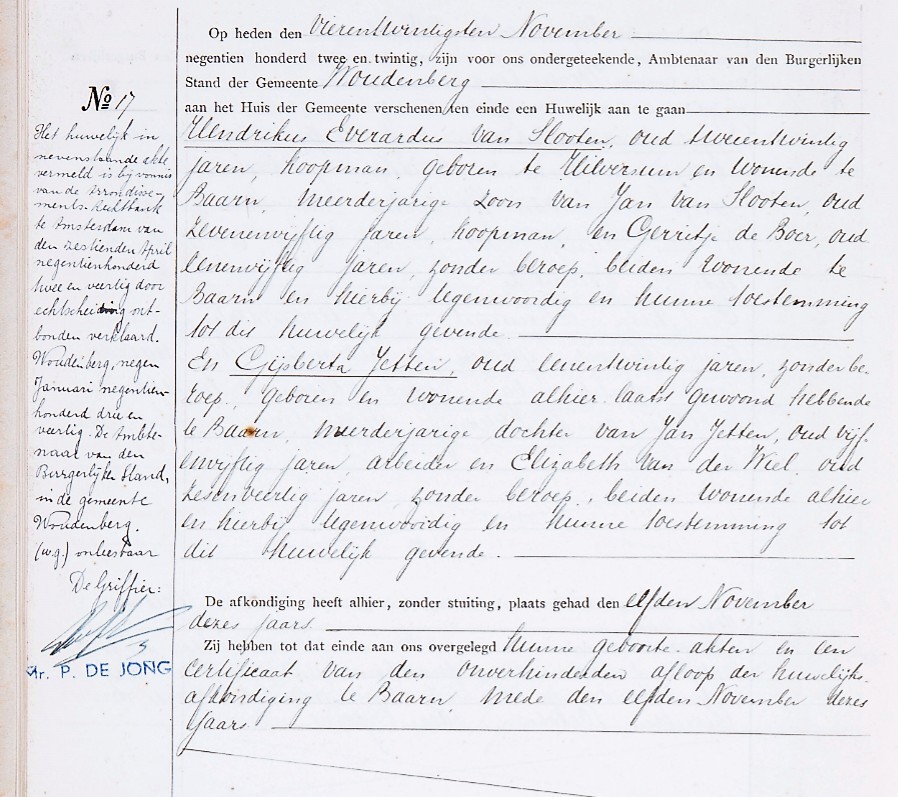 Op heden den Vierentwintigsten November
negentien honderd twee en twintig, zijn voor ons ondergeteekende, Ambtenaar van den Burgerlijken
Stand der Gemeente Woudenberg
aan het Huis der Gemeente verschenen ten einde een Huwelijk aan te gaan
Hendrikus Everardus van Slooten, oud tweeentwintig
jaren, koopman, geboren te Hilversum en wonende te
Baarn, meerderjarige zoon van Jan van Slooten, oud
zevenenvijftig jaren, koopman, en Gerritje de Boer, oud
eenenvijftig jaren, zonder beroep, beiden wonende te
Baarn en hierbij tegenwoordig en hunne toestemming
tot dit huwelijk gevende.
En Gijsberta Jetten, oud eenentwintig jaren, zonder be-
roep, geboren en wonende alhier laatst gewoond hebbende
te Baarn, meerderjarige dochter van Jan Jetten, oud vijf-
envijftig jaren, arbeider en Elizabeth van der Wiel, oud
zesenveertig jaren, zonder beroep, beiden wonende alhier
en hierbij tegenwoordig en hunne toestemming tot
dit huwelijk gevende.
De afkondiging heeft alhier, zonder stuiting, plaats gehad den elfden November
dezes jaars.
Zij hebben tot dat einde aan ons overgelegd hunne geboorte-akten en een
certificaat van den onverhinderden afloop der huwelijks-
afkondiging te Baarn, mede den elfden November dezes
jaars.
No 17
Het huwelijk in
nevenstaande akte
vermeld is bij vonnis
van de Arrondisse-
ments-Rechtbank
te Amsterdam van
den zestienden April
negentienhonderd
twee en veertig door
echtscheiding ont-
bonden verklaard.
Woudenberg, negen
Januari negentien-
honderd drie en
veertig. De Ambte-
naar van den
Burgerlijken Stand,
in de gemeente
Woudenberg.
(w.g.) onleesbaar
De Griffier:
Mr. P. DE JONG